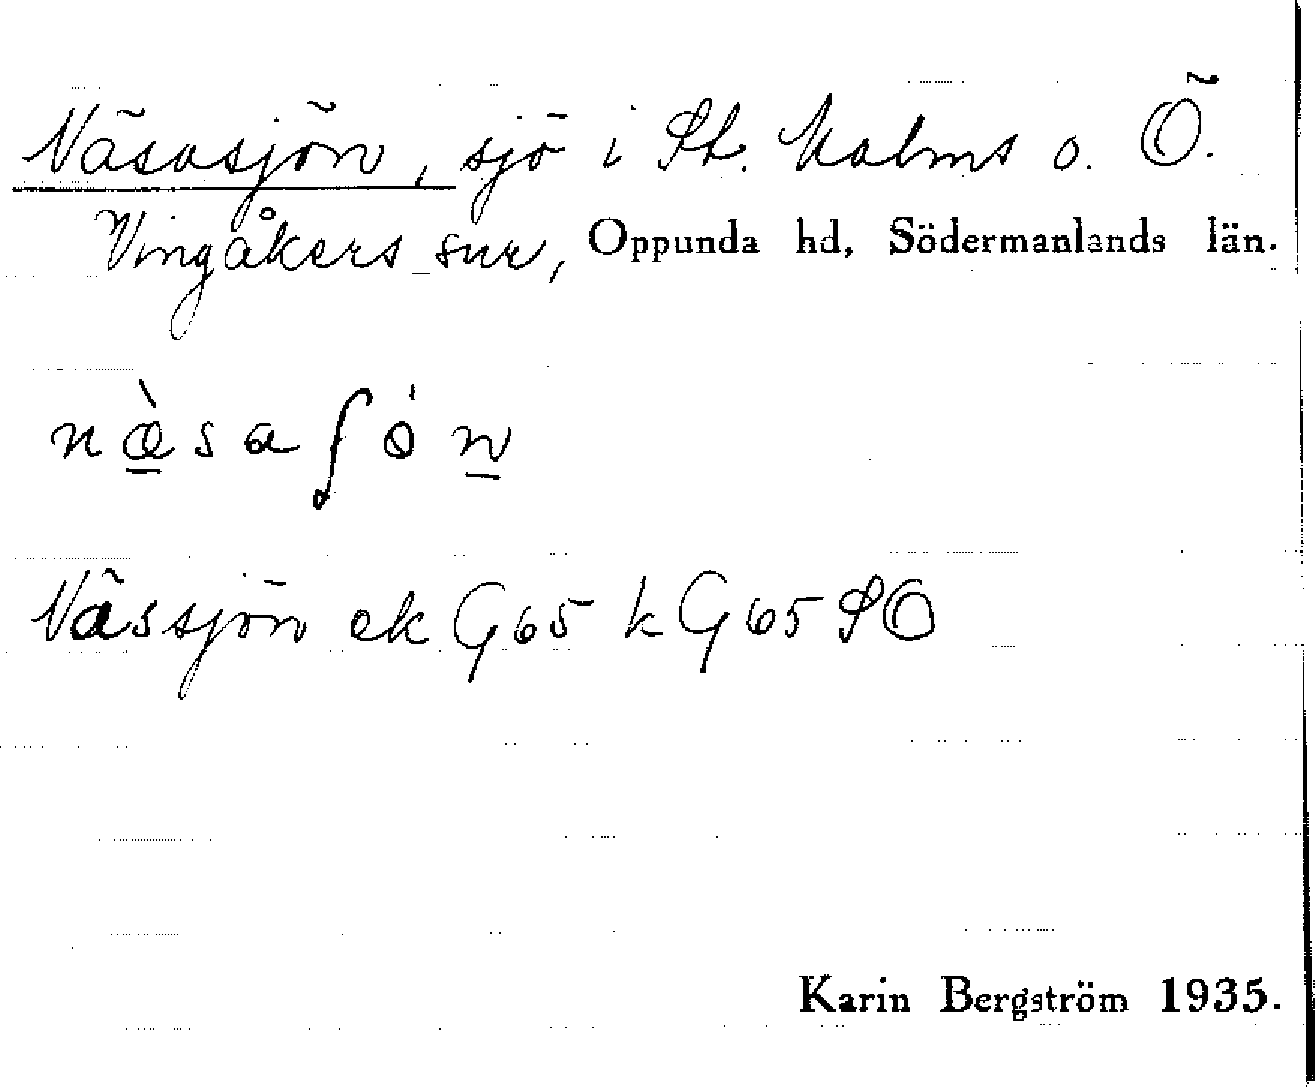 Näsasjön, sjö i St. Malms o. Ö.
Vingåkers snr, Oppunda hd, Södermanlands län.
næ̠̀saʃǿn̠
Nässjön ek G65 k G65 SO
Karin Bergström 1935.